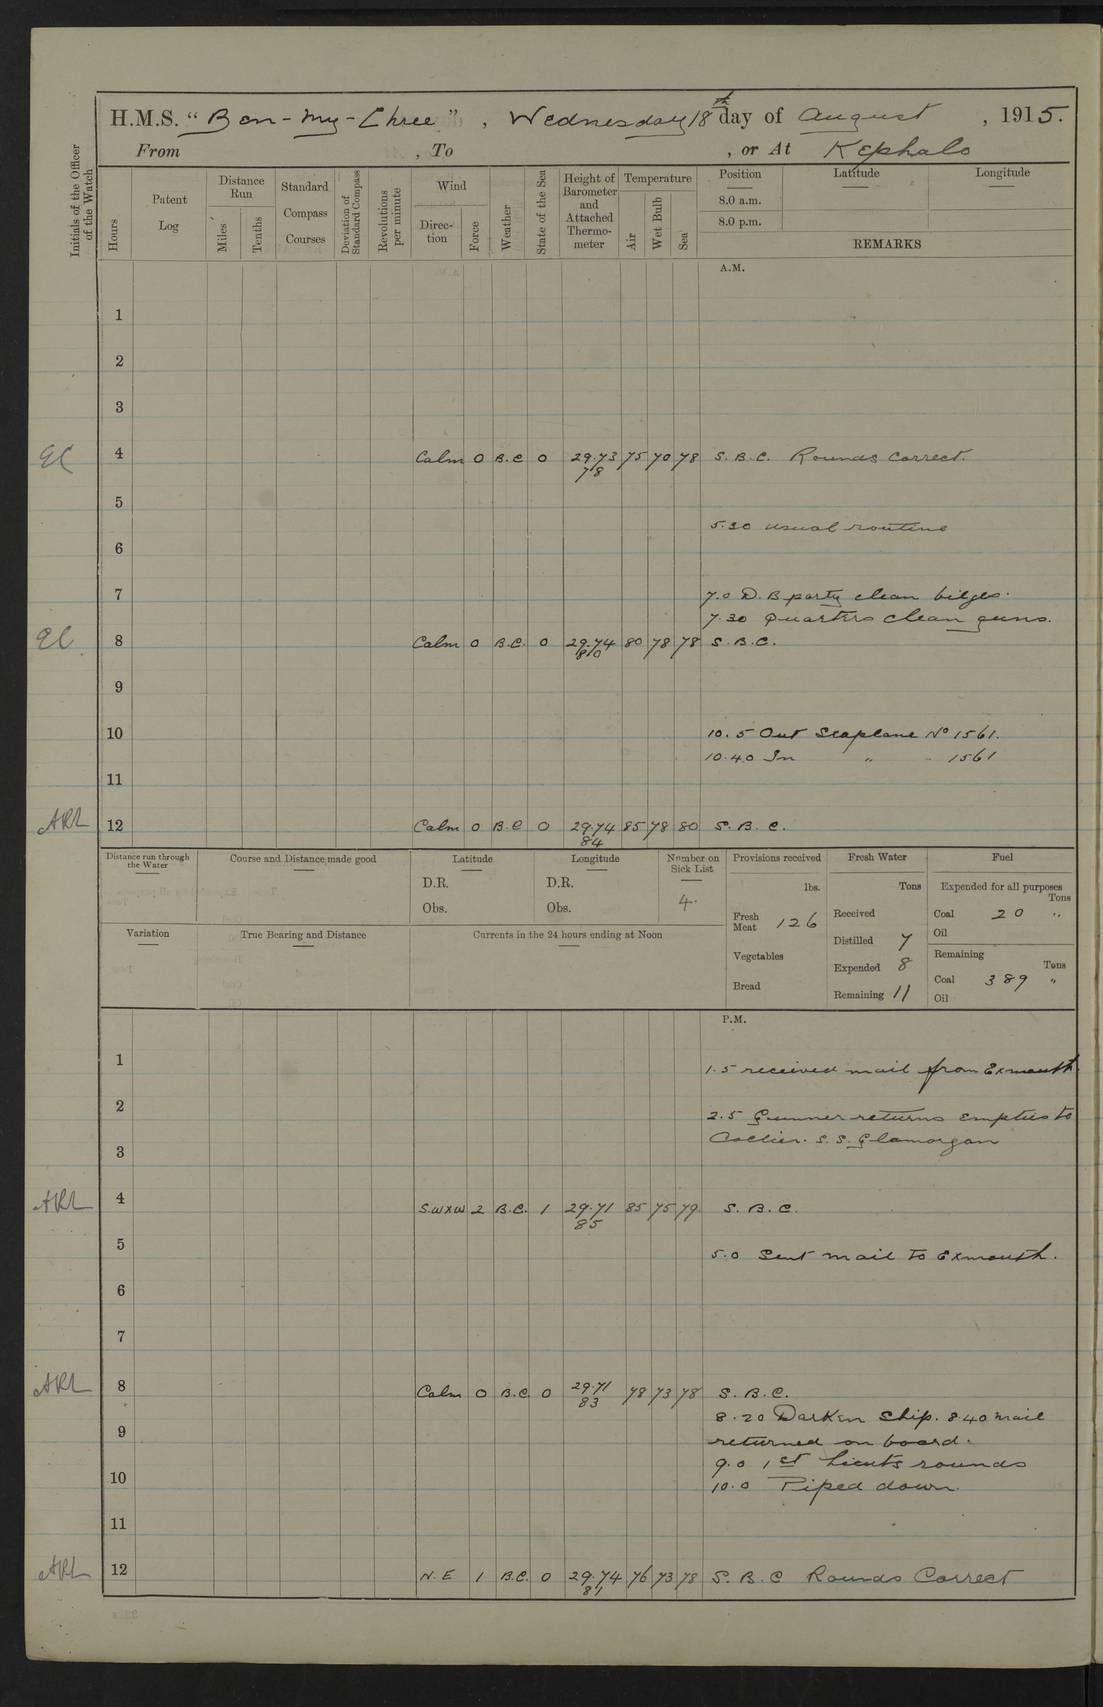 H.M.S. "Ben-my-Chree", Wednesday 18th day of August, 1915.
From , To , or At Kephalo
Initials of the Officer of the Watch
Hours
Patent Log
Distance Run
Miles
Tenths
Standard Compass Courses
Deviation of Standard Compass
Revolutions per minute
Wind
Direction
Force
Weather
State of the Sea
Height of Barometer and Attached Thermometer
Temperature
Air
Wet Bulb
Sea
Position
8.0 a.m.
8.0 p.m.
Latitude
Longitude
REMARKS
A.M.
1
2
3
EC 4 Calm 0 B.C 0 29.73 75 70 78 S.B.C. Rounds Correct.
78
5
5.30 usual routine
6
7 7.0 D.B party clean bilges.
7.30 Quarters clean guns.
EC 8 Calm 0 B.C. 0 29.74 80 78 78 S.B.C.
80
9
10 10.5 Out Seaplane No 1561.
10.40 In " - 1561
11
ARL 12 Calm 0 B.C 0 29.74 85 78 80 S.B.C.
84
Distance run through the Water
Course and Distance made good
Latitude
D.R.
Obs.
Longitude
D.R.
Obs.
Number on Sick List
4.
Variation
True Bearing and Distance
Currents in the 24 hours ending at Noon
Provisions received
lbs.
Fresh Meat 126
Vegetables
Bread
Fresh Water
Tons
Received
Distilled 7
Expended 8
Remaining 11
Fuel
Expended for all purposes
Tons
Coal 20 "
Oil
Remaining
Tons
Coal 389 "
Oil
P.M.
1 1.5 received mail from Exmouth.
2 2.5 Gunner returns Empties to
Collier. S.S. Glamorgan
3
ARL 4 S.W x W 2 B.C. 1 29.71 85 75 79. S.B.C.
85
5 5.0 Sent mail to Exmouth.
6
7
ARL 8 Calm 0 B.C. 0 29.71 78 73 78 S.B.C.
83
8.20 Darken Ship. 8.40 Mail
9 returned on board.
9.0 1st Lieuts rounds
10 10.0 Piped down.
11
ARL 12 N.E 1 B.C. 0 29.74 76 73 78 S.B.C Rounds Correct
81